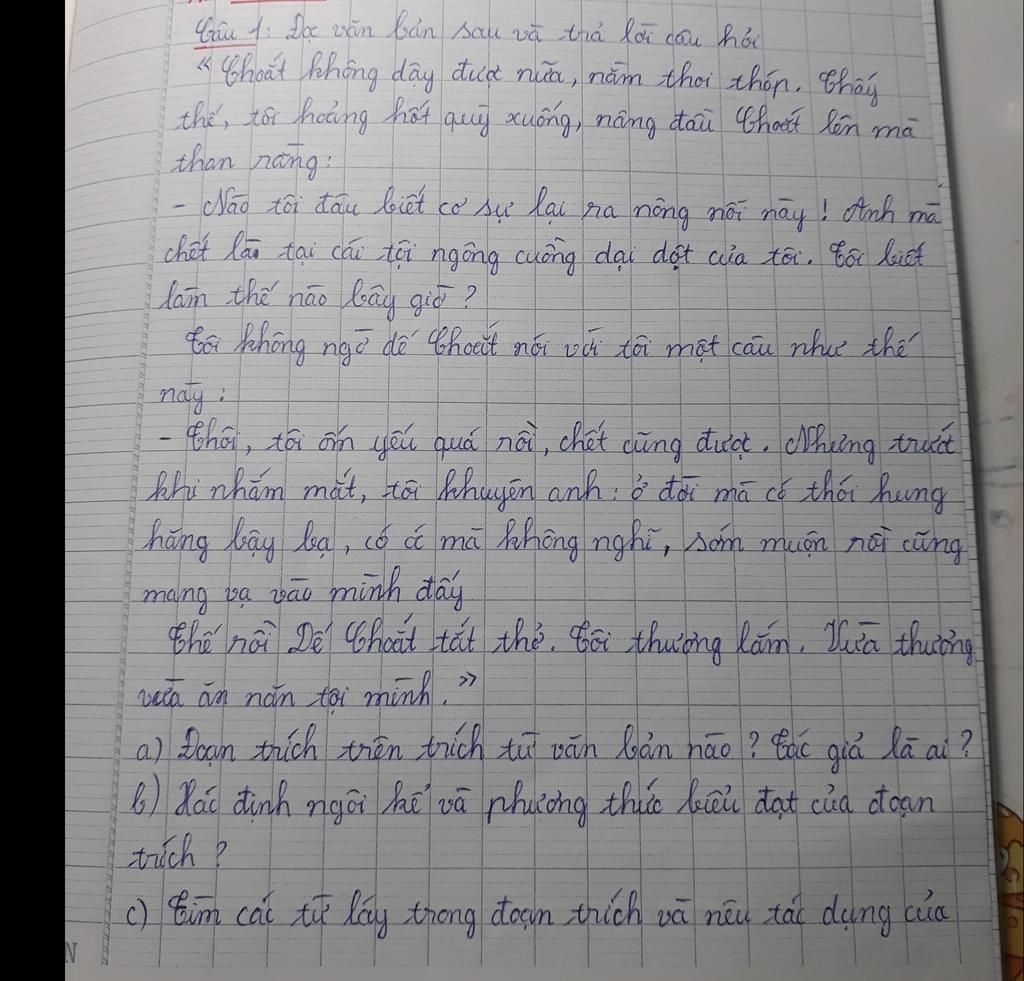 Câu 1: Đọc văn bản sau và trả lời câu hỏi
"Choắt không dậy được nữa, nằm thoi thóp. Thấy
thế, tôi hoảng hốt quỳ xuống, nâng đầu Choắt lên mà
than rằng:
- Nào tôi đâu biết cơ sự lại ra nông nỗi này! Anh mà
chết là tại cái tội ngông cuồng dại dột của tôi. Tôi biết
làm thế nào bây giờ?
Tôi không ngờ dế Choắt nói với tôi một câu như thế
này:
- Thôi, tôi ốm yếu quá rồi, chết cũng được. Nhưng trước
khi nhắm mắt, tôi khuyên anh: ở đời mà có thói hung
hăng bậy bạ, có óc mà không nghĩ, sớm muộn rồi cũng
mang vạ vào mình đấy
Thế rồi Dế Choắt tắt thở. Tôi thương lắm. Vừa thương
vừa ăn năn tội mình."
a) Đoạn trích trên trích từ văn bản nào? Tác giả là ai?
b) Xác định ngôi kể và phương thức biểu đạt của đoạn
trích?
c) Tìm các từ láy trong đoạn trích và nêu tác dụng của
N